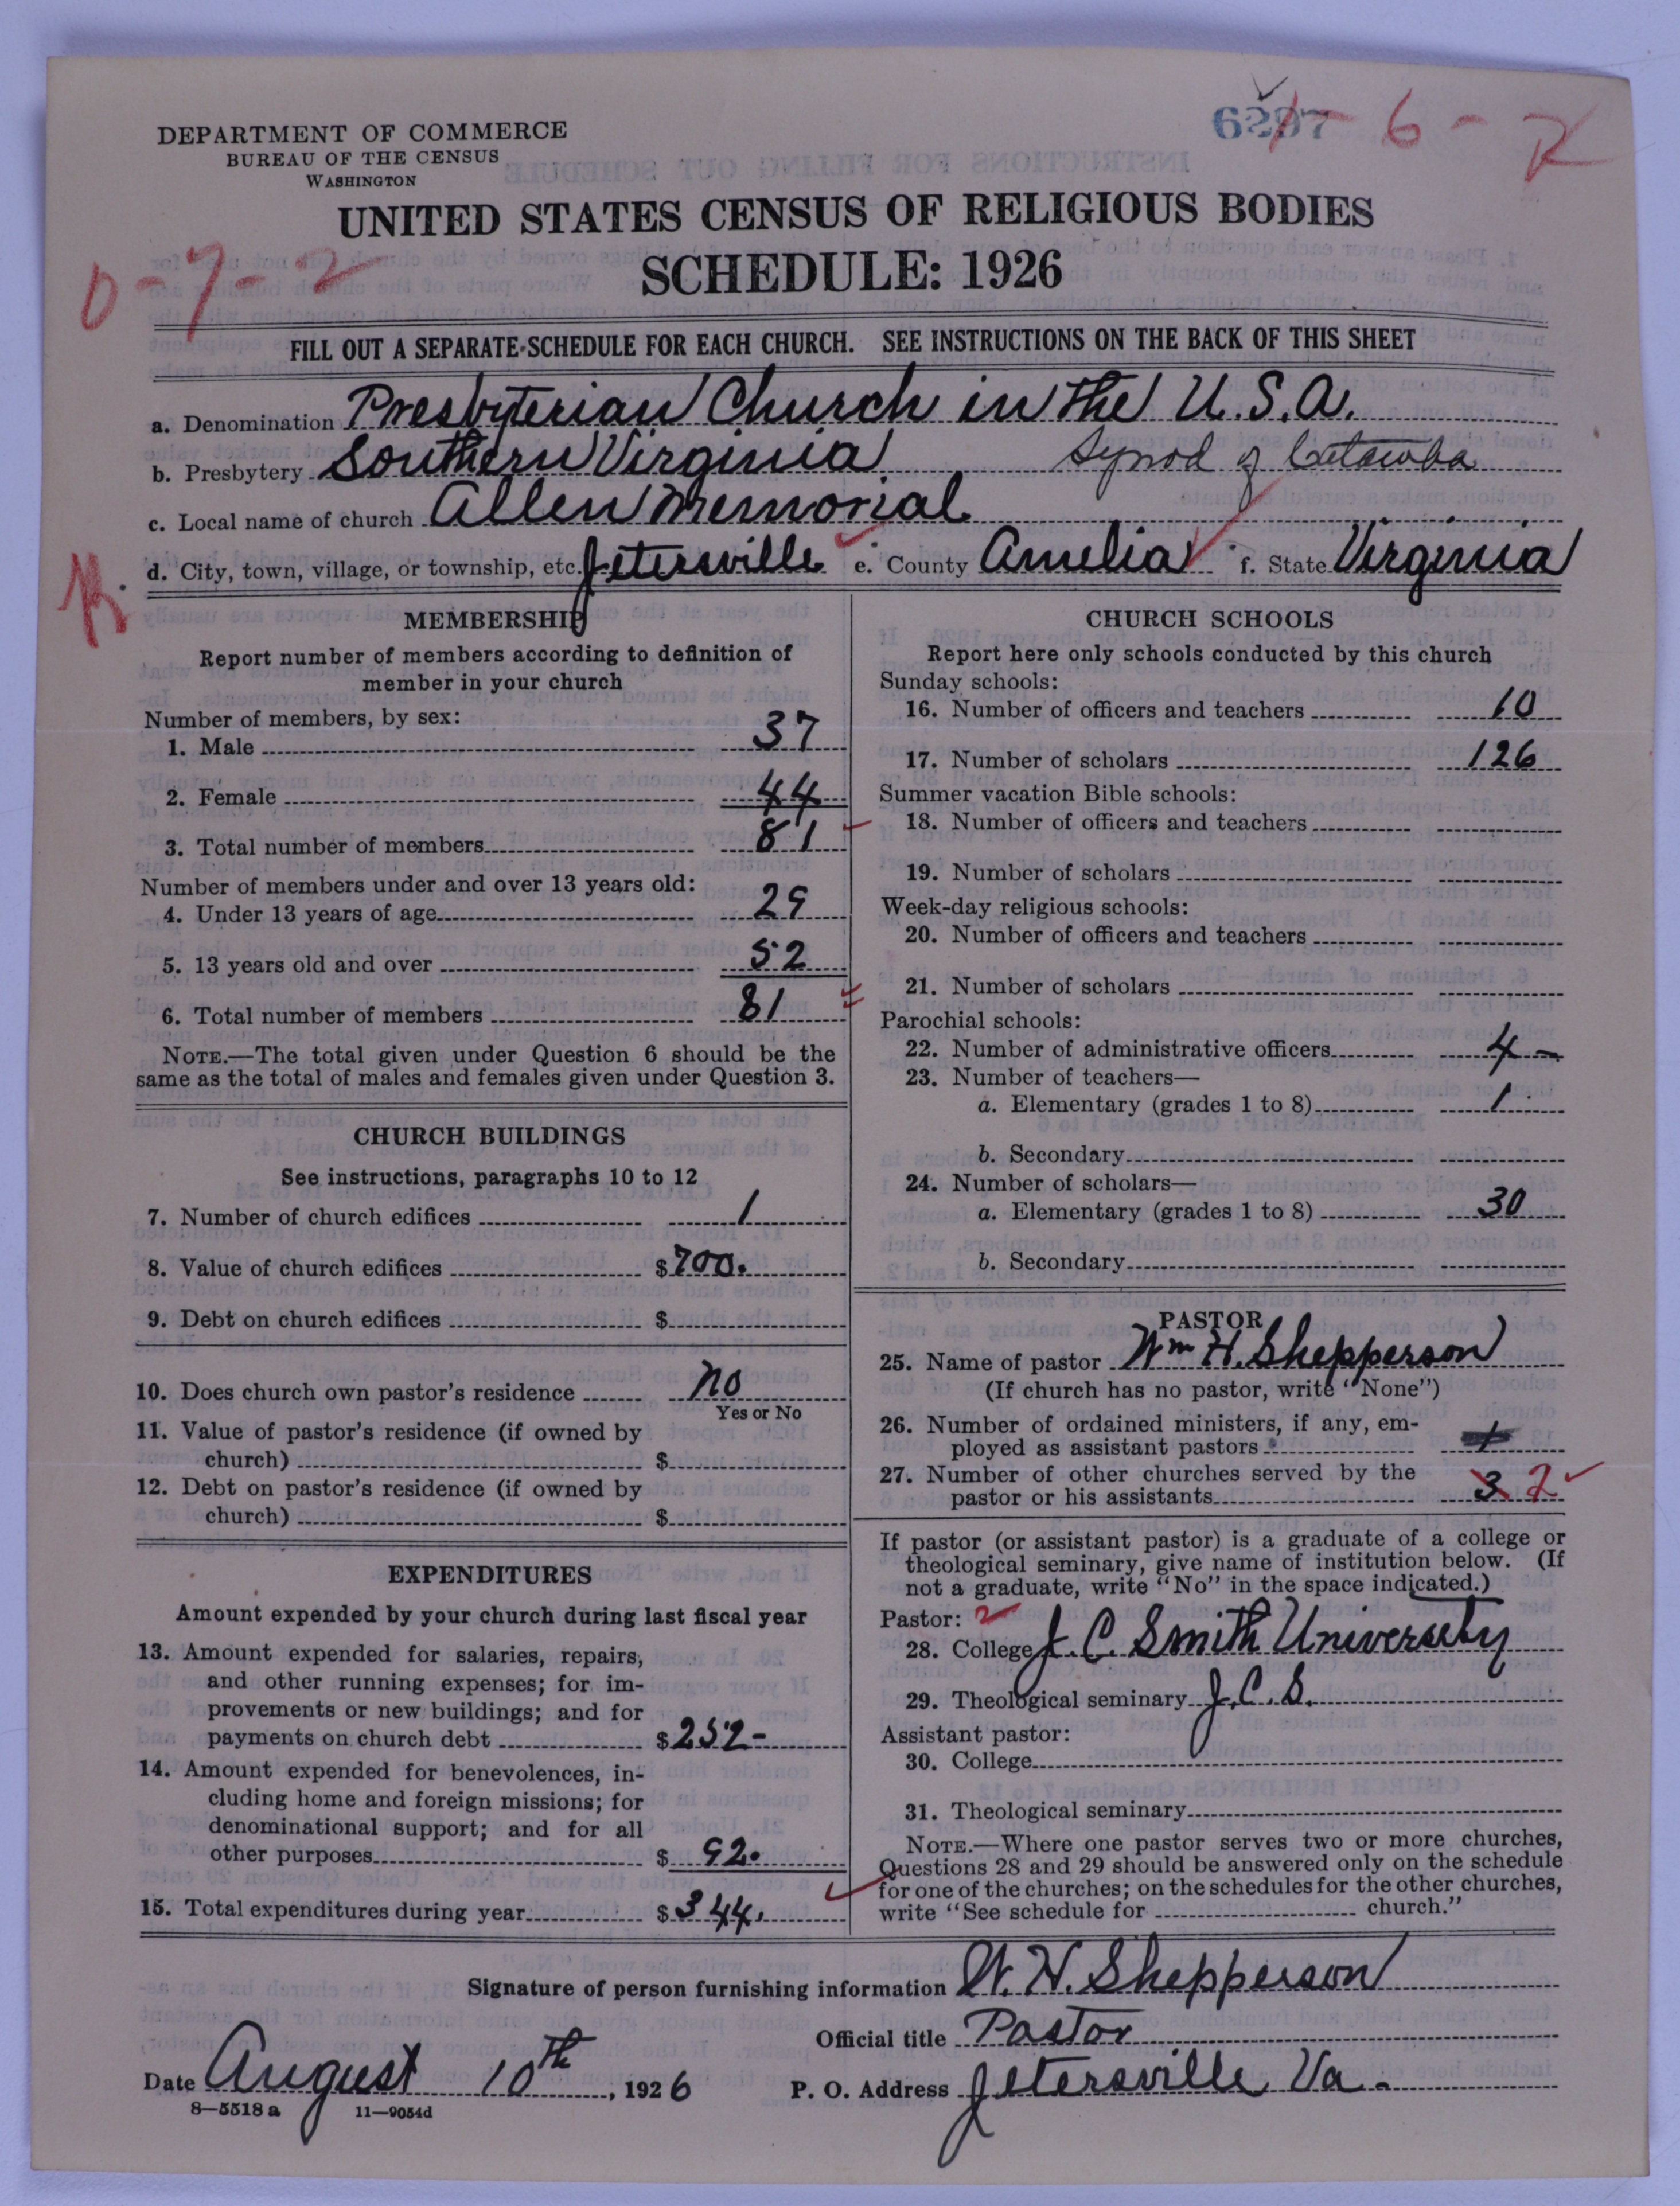 DEPARTMENT OF COMMERCE
BUREAU OF THE CENSUS
WASHINGTON
6297
1-6-K
UNITED STATES CENSUS OF RELIGIOUS BODIES
SCHEDULE: 1926
0-7-2
FILL OUT A SEPARATE SCHEDULE FOR EACH CHURCH. SEE INSTRUCTIONS ON THE BACK OF THIS SHEET
a. Denomination Presbyterian Church in the U.S.A.
b. Presbytery Southern Virginia Synod of Catawba
c. Local name of church Allen Memorial
d. City, town, village, or township, etc. Jetersville e. County Amelia f. State Virginia
K.
MEMBERSHIP
Report number of members according to definition of
member in your church
Number of members, by sex:
1. Male 37
2. Female 44
3. Total number of members 81
Number of members under and over 13 years old:
4. Under 13 years of age 29
5. 13 years old and over 52
6. Total number of members 81
NOTE.—The total given under Question 6 should be the
same as the total of males and females given under Question 3.
CHURCH BUILDINGS
See instructions, paragraphs 10 to 12
7. Number of church edifices 1
8. Value of church edifices $700.
9. Debt on church edifices $
10. Does church own pastor's residence no
Yes or No
11. Value of pastor's residence (if owned by
church) $
12. Debt on pastor's residence (if owned by
church) $
EXPENDITURES
Amount expended by your church during last fiscal year
13. Amount expended for salaries, repairs,
and other running expenses; for im-
provements or new buildings; and for
payments on church debt $252-
14. Amount expended for benevolences, in-
cluding home and foreign missions; for
denominational support; and for all
other purposes $92.
15. Total expenditures during year $344.
CHURCH SCHOOLS
Report here only schools conducted by this church
Sunday schools:
16. Number of officers and teachers 10
17. Number of scholars 126
Summer vacation Bible schools:
18. Number of officers and teachers
19. Number of scholars
Week-day religious schools:
20. Number of officers and teachers
21. Number of scholars
Parochial schools:
22. Number of administrative officers 4-
23. Number of teachers—
a. Elementary (grades 1 to 8) 1
b. Secondary
24. Number of scholars—
a. Elementary (grades 1 to 8) 30
b. Secondary
PASTOR
25. Name of pastor Wm H. Shepperson
(If church has no pastor, write "None")
26. Number of ordained ministers, if any, em-
ployed as assistant pastors
27. Number of other churches served by the
pastor or his assistants 3 2
If pastor (or assistant pastor) is a graduate of a college or
theological seminary, give name of institution below. (If
not a graduate, write "No" in the space indicated.)
Pastor: 2
28. College J. C. Smith University
29. Theological seminary J. C. S.
Assistant pastor:
30. College
31. Theological seminary
NOTE.—Where one pastor serves two or more churches,
Questions 28 and 29 should be answered only on the schedule
for one of the churches; on the schedules for the other churches,
write "See schedule for church."
Signature of person furnishing information W. H. Shepperson
Official title Pastor
Date August 10th, 1926 P. O. Address Jetersville Va.
8—5518a 11—9054d